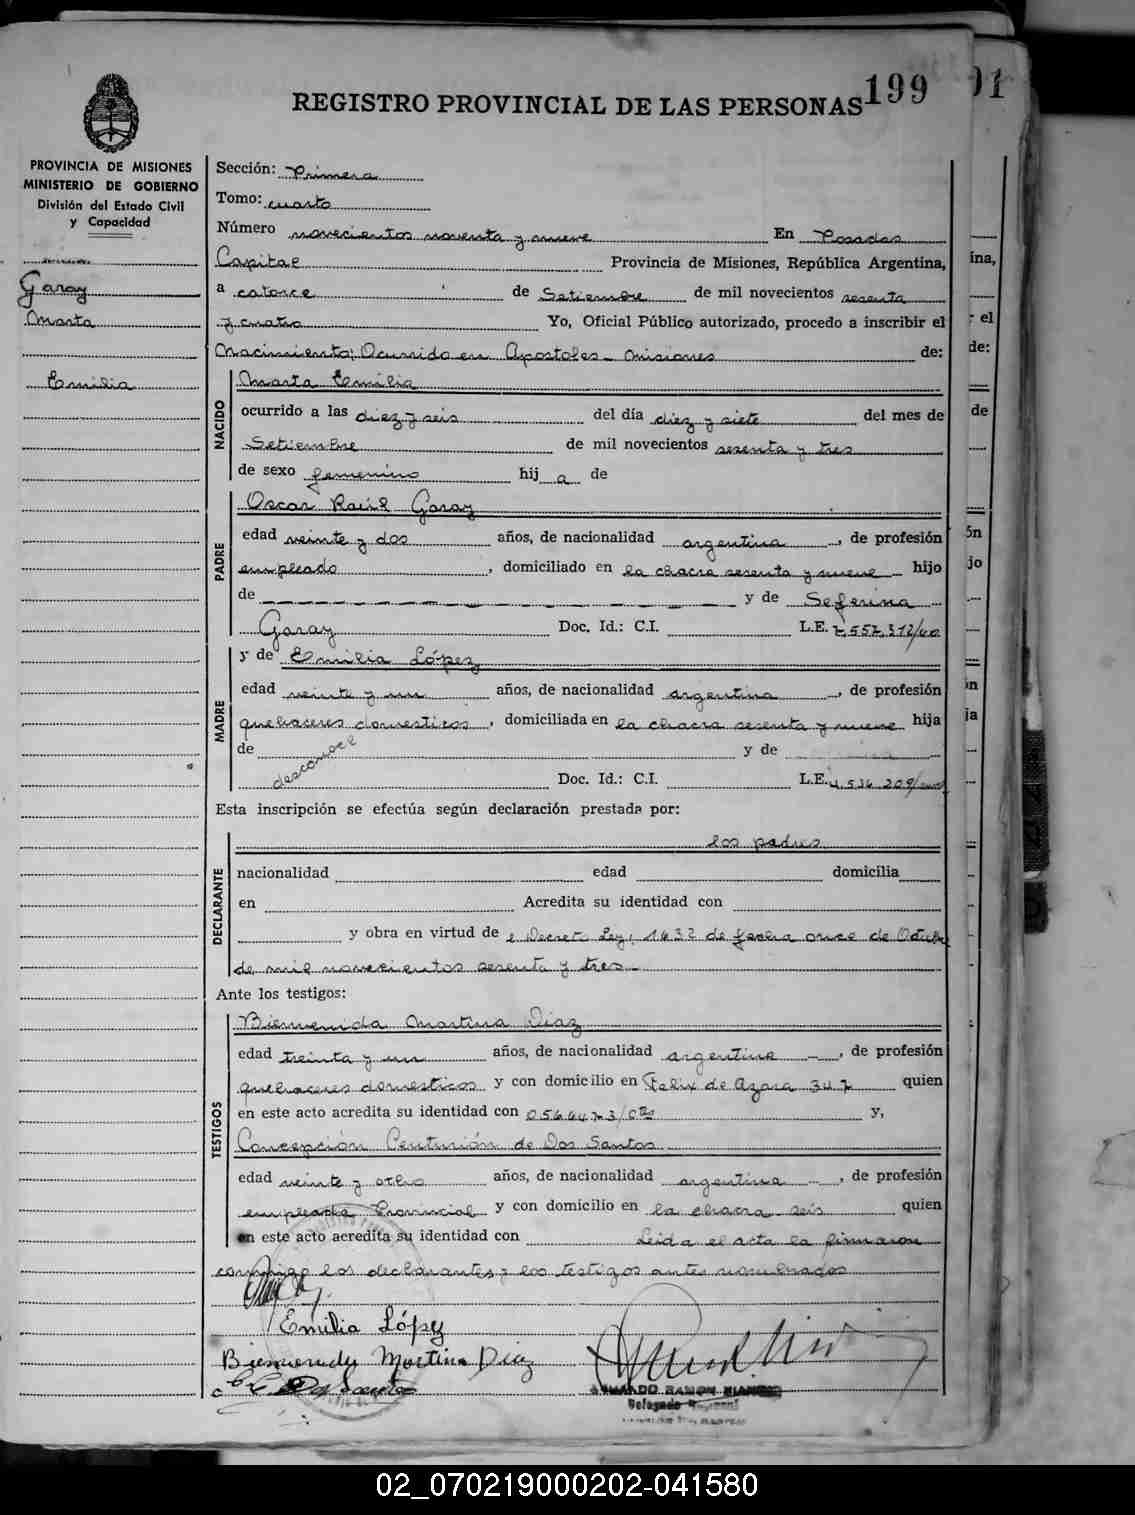 199
91
REGISTRO PROVINCIAL DE LAS PERSONAS
PROVINCIA DE MISIONES
MINISTERIO DE GOBIERNO
División del Estado Civil
y Capacidad
Garay
Marta
Emilia
Sección: Primera
Tomo: cuarto
Número novecientos noventa y nueve En Posadas
Capital Provincia de Misiones, República Argentina,
a catorce de Setiembre de mil novecientos sesenta
y cuatro Yo, Oficial Público autorizado, procedo a inscribir el
Nacimiento; Ocurrido en Apostoles - Misiones de:
NACIDO
Marta Emilia
ocurrido a las diez y seis del día diez y siete del mes de
Setiembre de mil novecientos sesenta y tres
de sexo femenino hij a de
PADRE
Oscar Raúl Garay
edad veinte y dos años, de nacionalidad argentina, de profesión
empleado, domiciliado en la chacra sesenta y nueve hijo
de y de Seferina
Garay Doc. Id.: C.I. L.E. 7.557.312/
MADRE
y de Emilia López
edad veinte y un años, de nacionalidad argentina, de profesión
quehaceres domesticos, domiciliada en la chacra sesenta y nueve hija
de desconoce y de
Doc. Id.: C.I. L.E. 4.536.209/
Esta inscripción se efectúa según declaración prestada por:
DECLARANTE
los padres
nacionalidad edad domicilia
en Acredita su identidad con
y obra en virtud de Decreto Ley, 1632 de fecha once de Octubre
de mil novecientos sesenta y tres
Ante los testigos:
TESTIGOS
Bienvenida Martina Diaz
edad treinta y un años, de nacionalidad argentina, de profesión
quehaceres domesticos y con domicilio en Felix de Azara 347 quien
en este acto acredita su identidad con y,
Concepción Centurión de Dos Santos
edad veinte y ocho años, de nacionalidad argentina, de profesión
empleada Provincial y con domicilio en la chacra seis quien
en este acto acredita su identidad con Leida el acta la firmaron
conmigo los declarantes y los testigos antes nombrados
Emilia López
Bienvenida Martina Diaz
Dos Santos
RAMON
Delegado
02_070219000202-041580